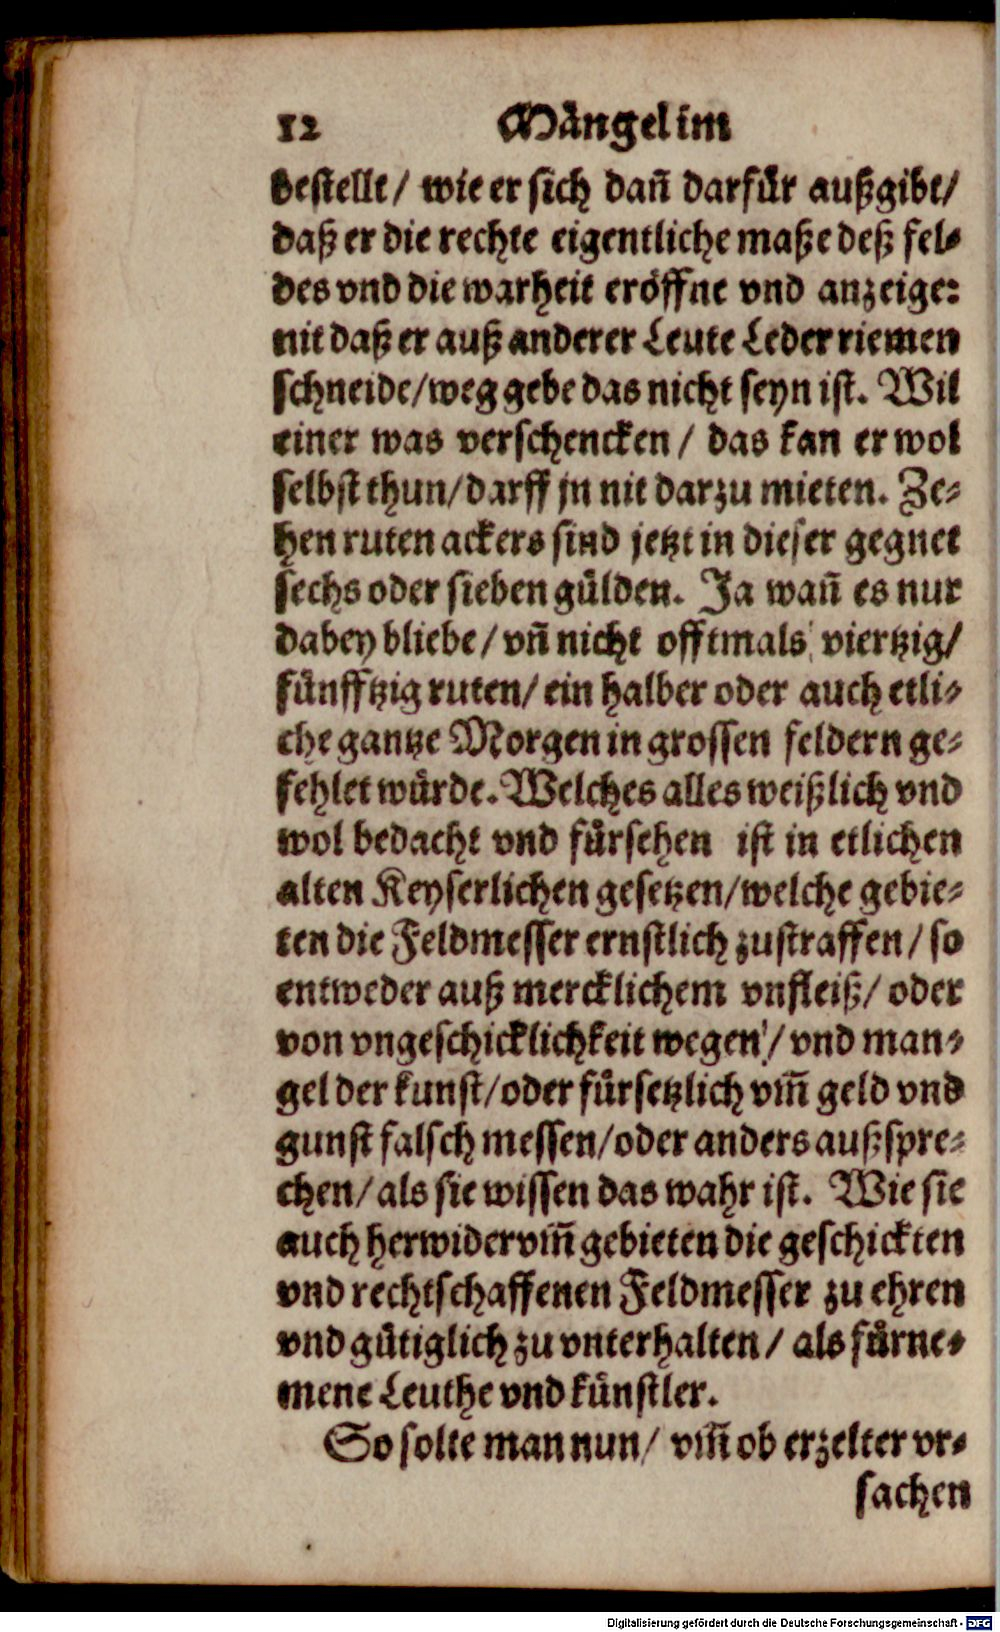 12 Mängel im
bestellt / wie er sich dañ darfür außgibt /
daß er die rechte eigentliche maße deß fel⸗
des vnd die warheit eröffne vnd anzeige:
nit daß er auß anderer Leute Leder riemen
schneide / weg gebe das nicht seyn ist. Wil
einer was verschencken / das kan er wol
selbst thun / darff jn nit darzu mieten. Ze⸗
hen ruten ackers sind jetzt in dieser gegnet
sechs oder sieben gülden. Ja wañ es nur
dabey bliebe / vñ nicht offtmals viertzig /
fünfftzig ruten / ein halber oder auch etli⸗
che gantze Morgen in grossen feldern ge⸗
fehlet würde. Welches alles weißlich vnd
wol bedacht vnd fürsehen ist in etlichen
alten Keyserlichen gesetzen / welche gebie⸗
ten die Feldmesser ernstlich zustraffen / so
entweder auß mercklichem vnfleiß / oder
von vngeschicklichkeit wegen / vnd man⸗
gel der kunst / oder fürsetzlich vm̃ geld vnd
gunst falsch messen / oder anders außspre⸗
chen / als sie wissen das wahr ist. Wie sie
auch herwidervm̃ gebieten die geschickten
vnd rechtschaffenen Feldmesser zu ehren
vnd gütiglich zu vnterhalten / als fürne⸗
mene Leuthe vnd künstler.
So solte man nun / vm̃ ob erzelter vr⸗
sachen
Digitalisierung gefördert durch die Deutsche Forschungsgemeinschaft - DFG